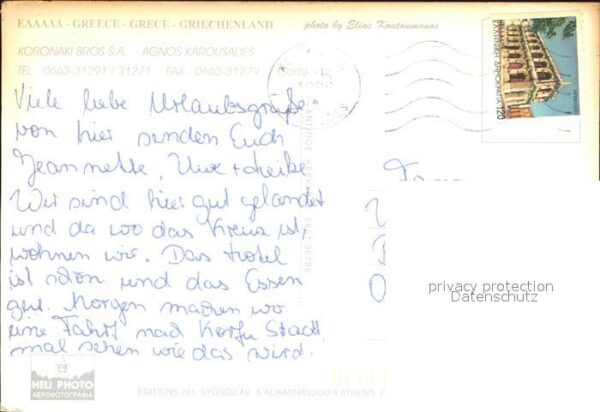 ΕΛΛΑΛΛ - GREECE - GRECE - GRIECHENLAND
photo by Elias Koutoumanos
KORONAKI BROS S.A. AGNOS KAROUSADES
TEL : 0663-31291 / 31271 FAX : 0663-31279
ΕΛΛΗΝΙΚΗ ΔΗΜΟΚΡΑΤΙΑ 120
Viele liebe Urlaubsgrüße
von hier senden Euch
Jeannette, Uwe + Heike
Wir sind hier gut gelandet
und da wo das Kreuz ist,
wohnen wir. Das Hotel
ist schön und das Essen
gut. Morgen machen wir
eine Fahrt nach Korfu Stadt
mal sehen wie das wird.
privacy protection
Datenschutz
HELI PHOTO
ΑΕΡΟΦΩΤΟΓΡΑΦΙΑ
EDITIONS 241, SYGROU AV. & ALIKARNASSOU 4 ATHENS